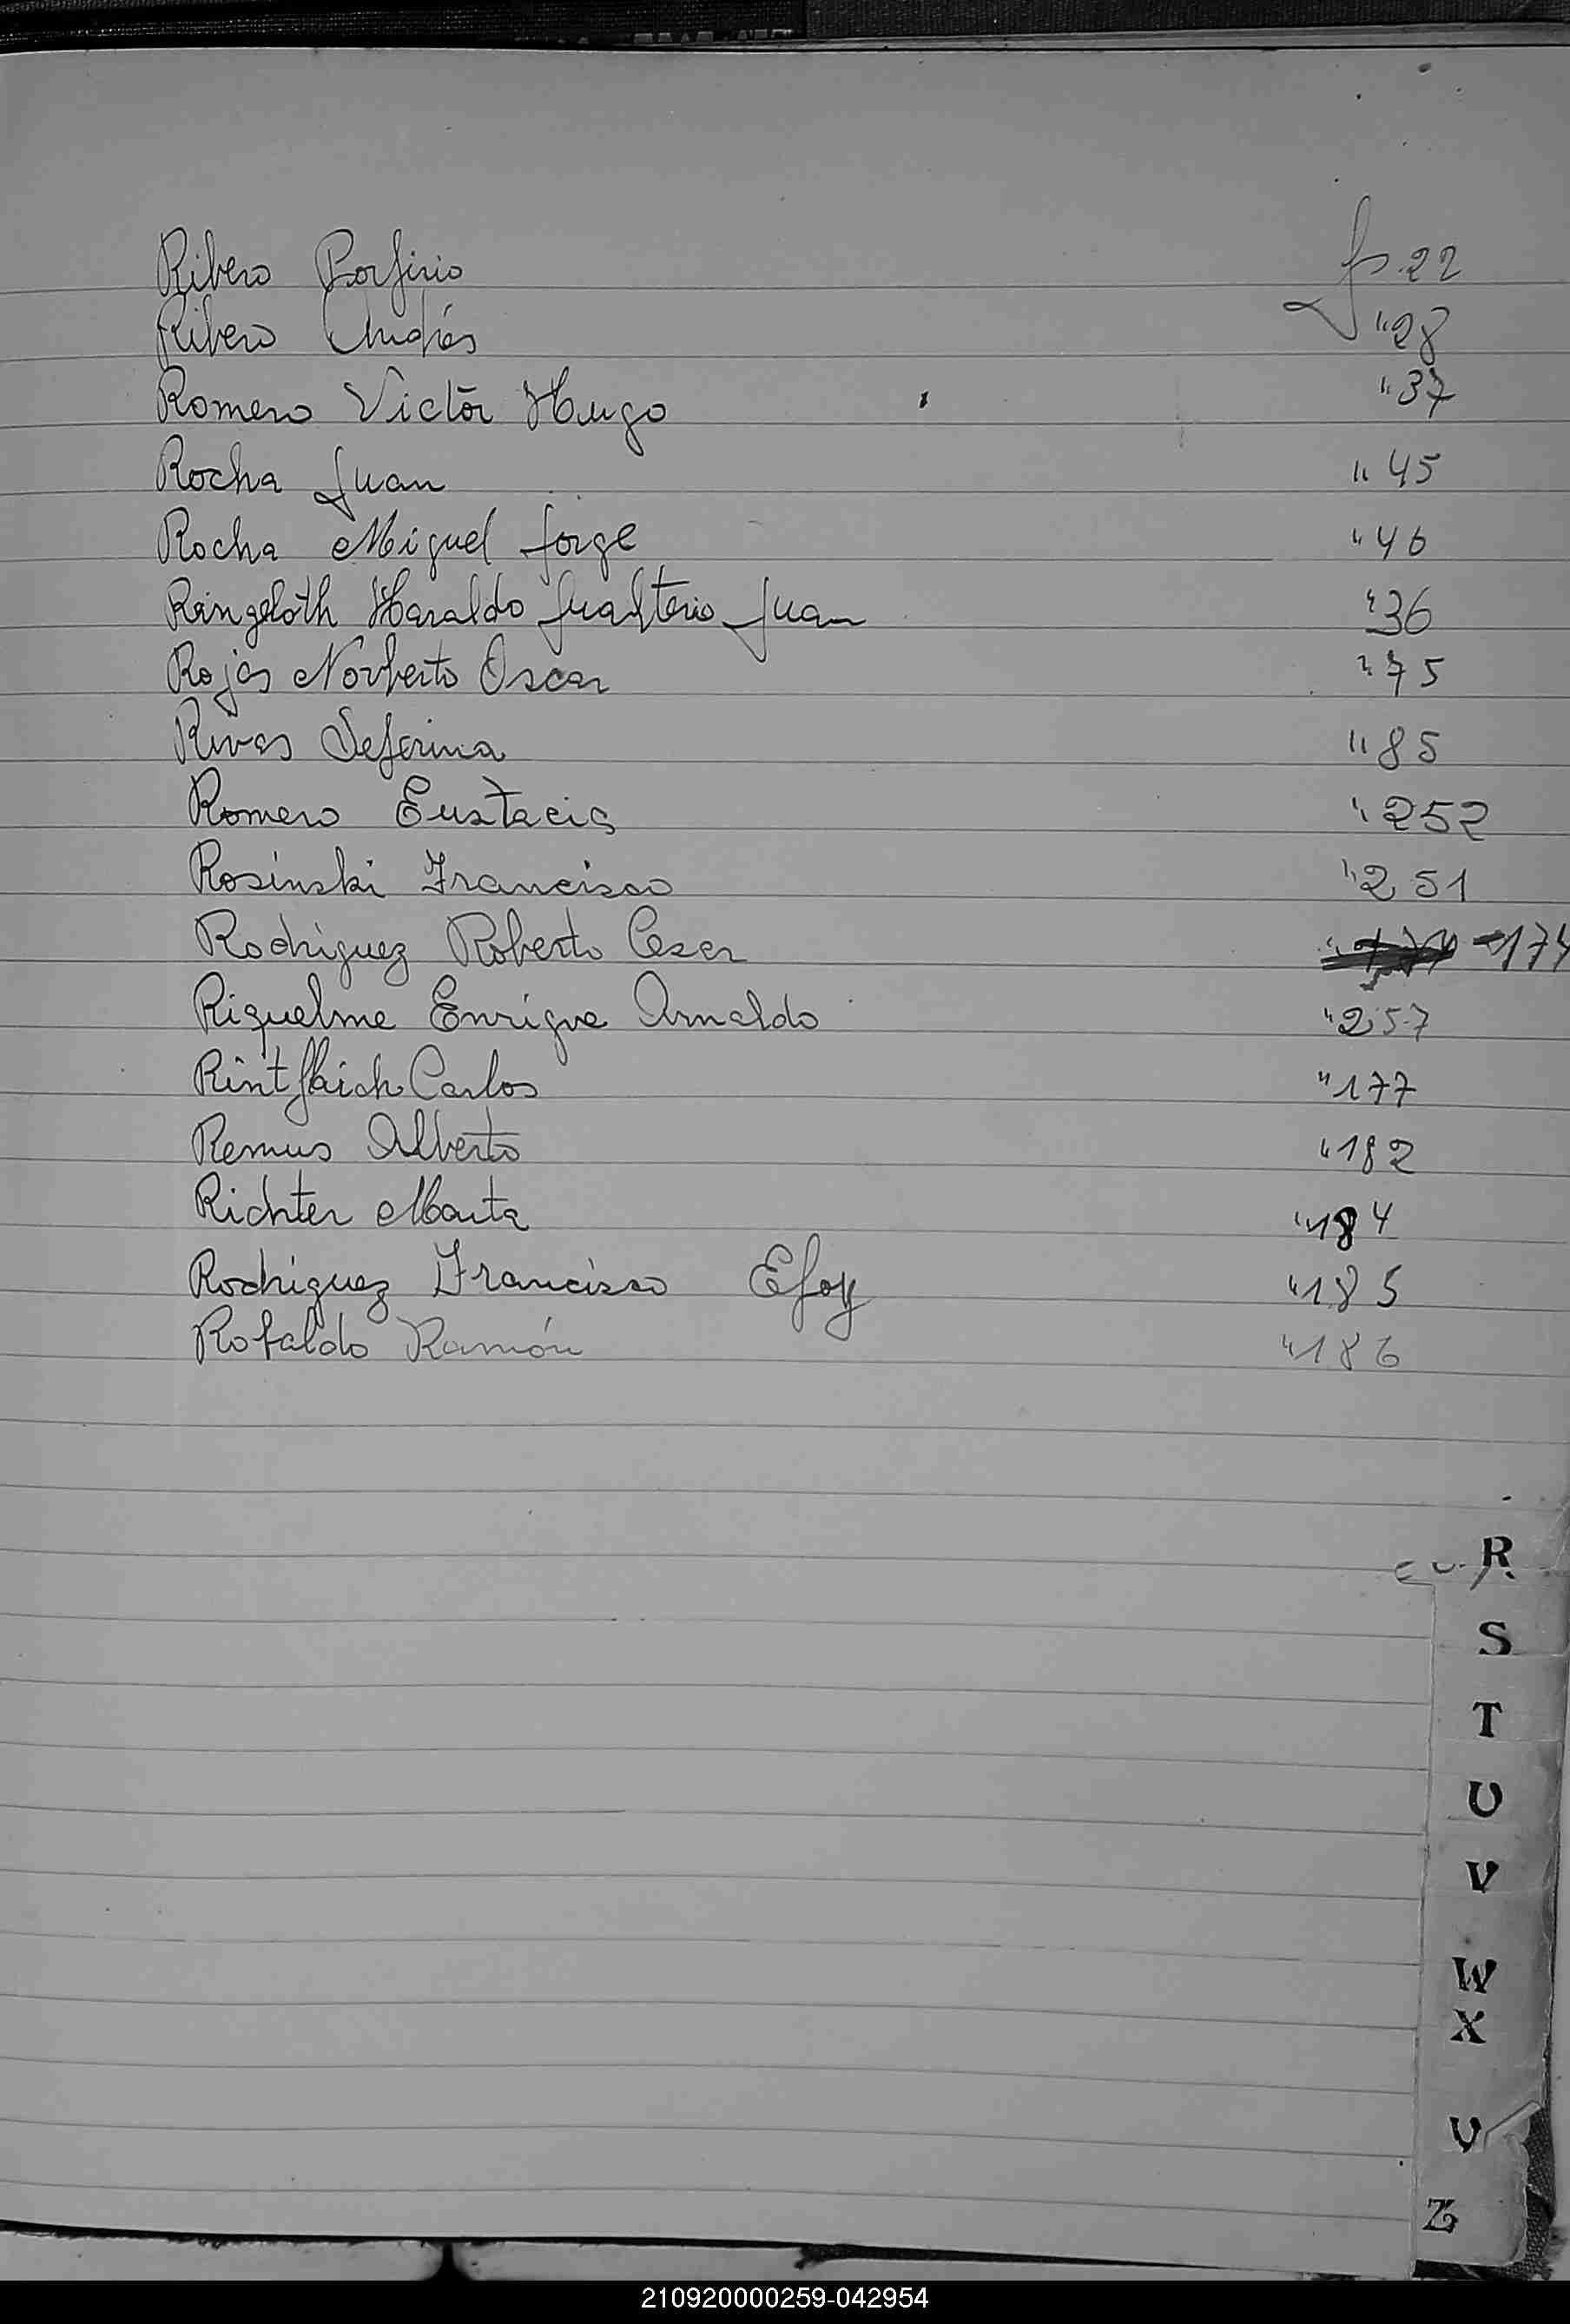 Ribero Porfirio fs 22
Ribero Andrés " 28
Romero Victor Hugo " 37
Rocha Juan " 45
Rocha Miguel Jorge " 46
Ringeloth Haraldo Gualterio Juan " 36
Rojas Norberto Oscar " 75
Rivas Seferina " 85
Romero Eustacia " 252
Rosinski Francisco " 251
Rodriguez Roberto Cesar 174
Riquelme Enrique Arnaldo " 257
Carlos " 177
Remus Alberto " 182
Richter Marta " 184
Rodriguez Francisco Eloy " 185
Ramón " 186
R
S
T
U
V
W
X
Z
210920000259-042954